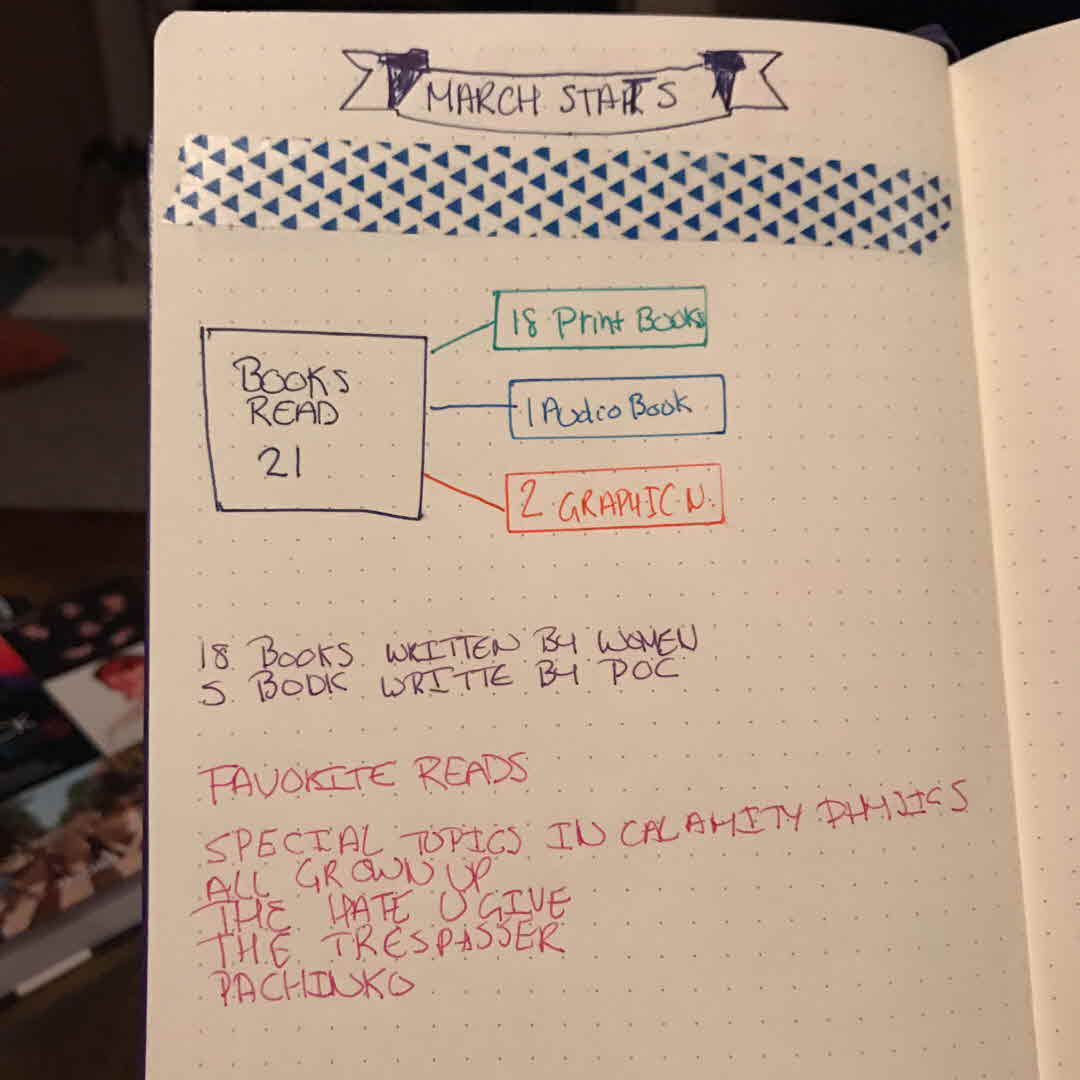 MARCH STATS
BOOKS
READ
21
18 Print Books
1 Audio Book
2 GRAPHIC N.
18 BOOKS WRITTEN BY WOMEN
5 BOOK WRITTE BY POC
FAVORITE READS
SPECIAL TOPICS IN CALAMITY PHYSICS
ALL GROWN UP
THE HATE U GIVE
THE TRESPASSER
PACHINKO